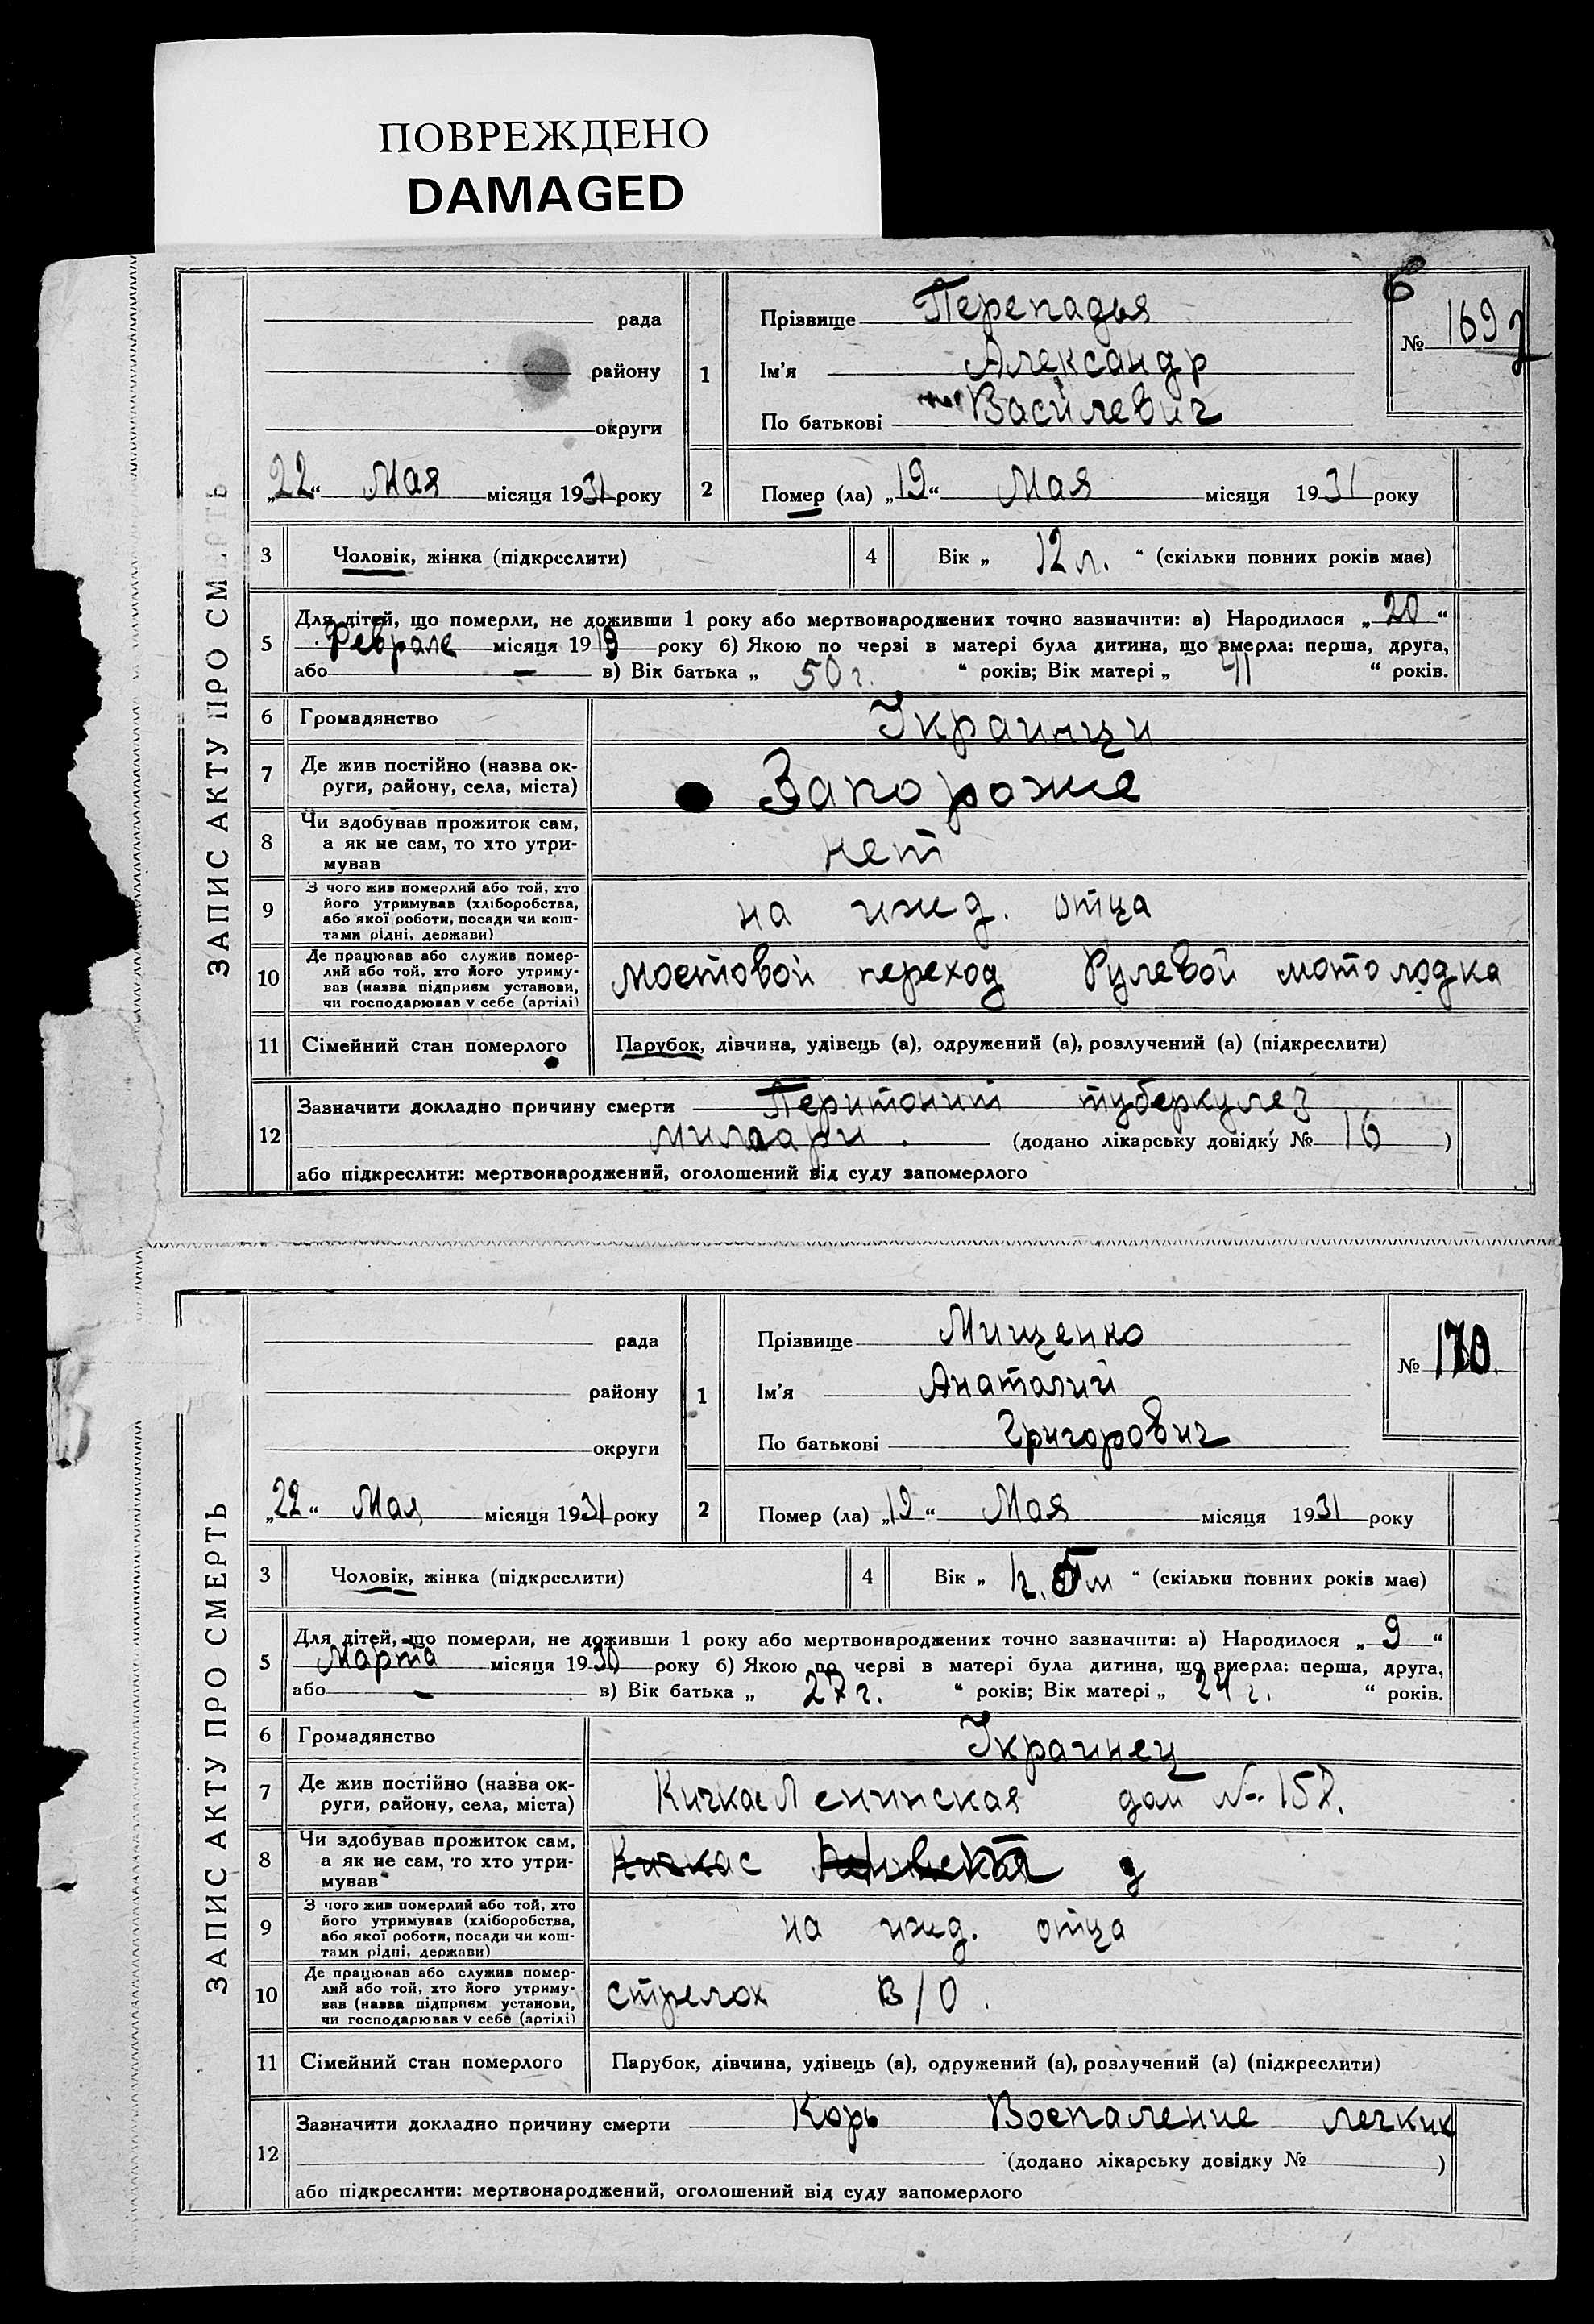 ПОВРЕЖДЕНО
DAMAGED
ЗАПИС АКТУ ПРО СМ РТЬ
рада
району
округи
„22“ Мая місяця 1931 року
1
Прізвище Перепадья
Ім'я Александр
По батькові Василевич
№ 169
2
Помер (ла) „19“ Мая місяця 1931 року
3
Чоловік, жінка (підкреслити)
4
Вік „ 12 л. “ (скільки повних років має)
5
Для дітей, що померли, не доживши 1 року або мертвонароджених точно зазначити: а) Народилося „20“
Феврале місяця 1919 року б) Якою по черзі в матері була дитина, що вмерла: перша, друга,
або — в) Вік батька „ 50 г. “ років; Вік матері „ 41 “ років.
6
Громадянство
Украинци
7
Де жив постійно (назва ок-
руги, району, села, міста)
Запороже
8
Чи здобував прожиток сам,
а як не сам, то хто утри-
мував
нет
9
З чого жив померлий або той, хто
його утримував (хліборобства,
або якої роботи, посади чи кош-
тами рідні, держави)
на ижд. отца
10
Де працював або служив помер-
лий або той, хто його утриму-
вав (назва підприєм установи,
чи господарював у себе (артілі)
мостовой переход Рулевой мотолодка
11
Сімейний стан померлого
Парубок, дівчина, удівець (а), одружений (а), розлучений (а) (підкреслити)
12
Зазначити докладно причину смерти Перитонит туберкулез
милиари. (додано лікарську довідку № 16 )
або підкреслити: мертвонароджений, оголошений від суду запомерлого
ЗАПИС АКТУ ПРО СМЕРТЬ
рада
району
округи
„22“ Мая місяця 1931 року
1
Прізвище Мищенко
Ім'я Анаталий
По батькові Григорович
№ 170
2
Помер (ла) „19“ Мая місяця 1931 року
3
Чоловік, жінка (підкреслити)
4
Вік „ м “ (скільки повних років має)
5
Для дітей, що померли, не доживши 1 року або мертвонароджених точно зазначити: а) Народилося „9“
Марта місяця 1930 року б) Якою по черзі в матері була дитина, що вмерла: перша, друга,
або — в) Вік батька „ 27 г. “ років; Вік матері „ 24 г. “ років.
6
Громадянство
Украинец
7
Де жив постійно (назва ок-
руги, району, села, міста)
Кичкас Ленинская дом №
8
Чи здобував прожиток сам,
а як не сам, то хто утри-
мував
Кичкас
9
З чого жив померлий або той, хто
його утримував (хліборобства,
або якої роботи, посади чи кош-
тами рідні, держави)
на ижд. отца
10
Де працював або служив помер-
лий або той, хто його утриму-
вав (назва підприєм установи,
чи господарював у себе (артілі)
стрелок В/О.
11
Сімейний стан померлого
Парубок, дівчина, удівець (а), одружений (а), розлучений (а) (підкреслити)
12
Зазначити докладно причину смерти Корь Воспаление легких
(додано лікарську довідку № )
або підкреслити: мертвонароджений, оголошений від суду запомерлого